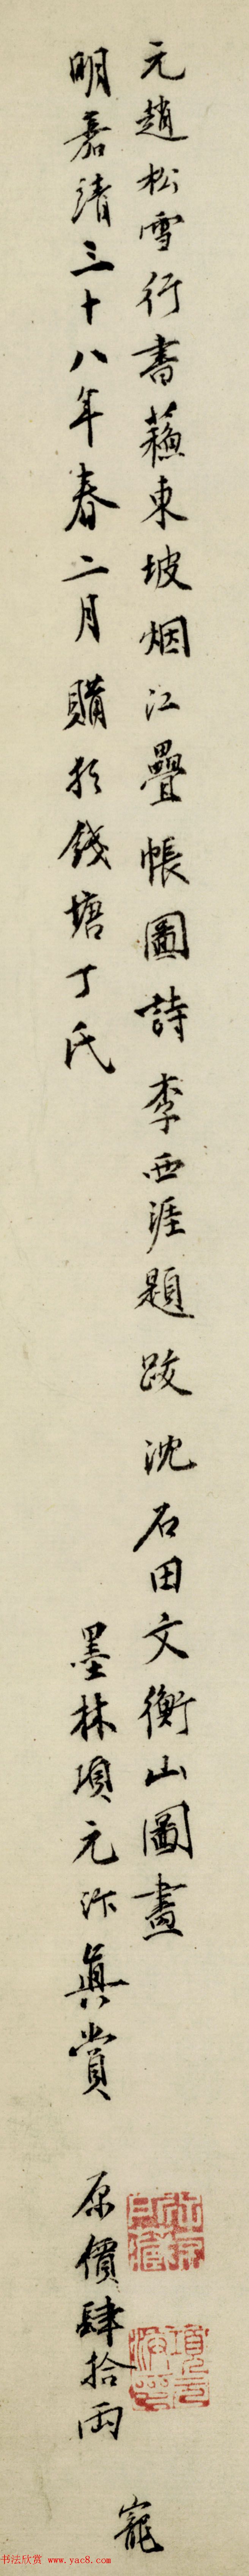 元趙松雪行書蘇東坡烟江疊帳圖詩李西涯題跋沈石田文衡山圖畫
明嘉靖三十八年春二月購於錢塘丁氏
墨林項元汴真賞
原價肆拾兩
寵
书法欣赏 www.yac8.com